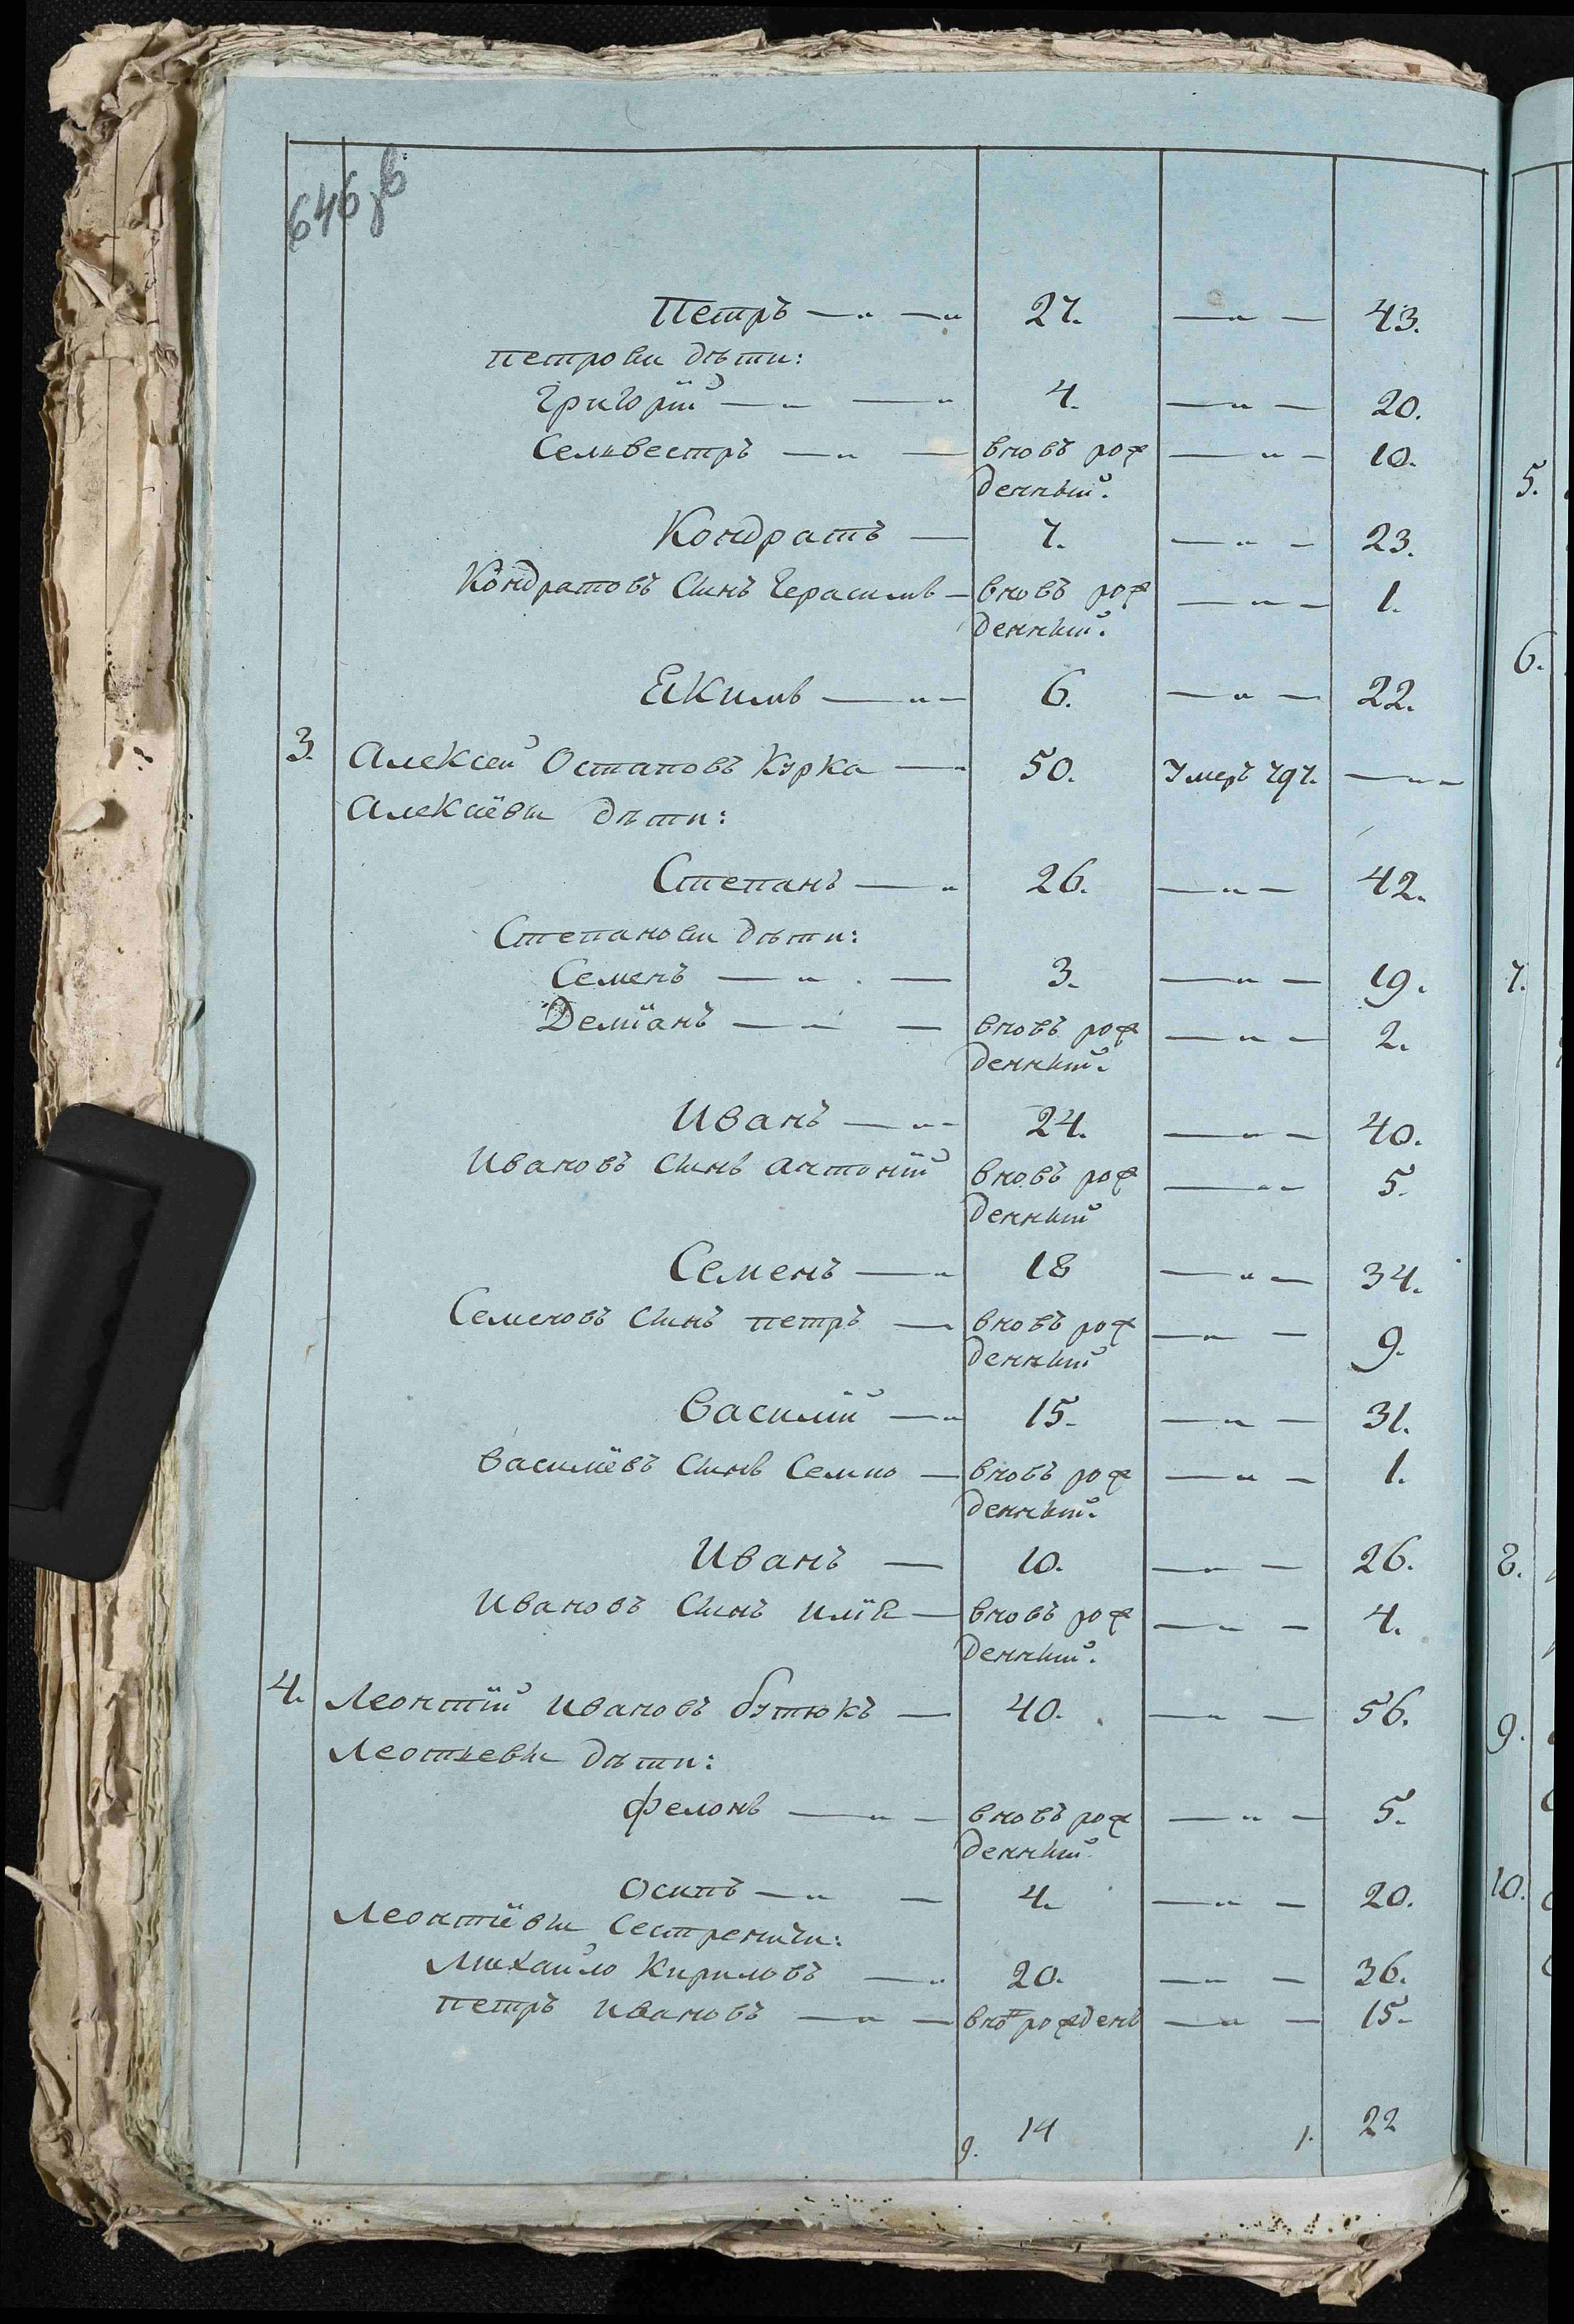 646 об
Петръ — „ — „ 27. — „ — 43.
петрови дѣти:
Григорїй — „ — „ 4. — „ — 20.
Селивестръ — „ — вновъ рож — „ — 10.
денный.
Кондратъ — 7. — „ — 23.
Кондратовъ Синъ Герасимъ — вновъ рож — „ — 1.
денный.
Екимъ — „ — 6. — „ — 22.
3. Алексей Остаповъ Курка — „ 50. Умеръ 797. — „ —
Алексїевы дѣти:
Степанъ — „ 26. — „ — 42.
Степанови дѣти:
Семенъ — „ . — 3. — „ — 19.
Демїанъ — „ — вновъ рож — „ — 2.
денный.
Иванъ — „ — 24. — „ — 40.
Ивановъ Синъ Антонїй вновъ рож — „ — 5.
денный
Семенъ — „ 18 — „ — 34.
Семеновъ Синъ петръ — вновъ рож — „ — 9.
денный
Василїй — „ 15. — „ — 31.
Василїевъ Синъ Семио — вновъ рож — „ — 1.
денный.
Иванъ — 10. — „ — 26.
Ивановъ Синъ Илїя — вновъ рож — „ — 4.
денный.
4. Леонтїй Ивановъ бутюкъ — 40. — „ — 56.
Леотьевы дѣти:
Филонъ — „ — вновъ рож — „ — 5.
денный
Осипъ — „ — 4. — „ — 20.
Леонтїевы Сестреничи:
Михайло Кириловъ — „ 20. — „ — 36.
петръ Ивановъ — „ — внов рожденъ — „ — 15.
9. 14 1. 22
5.
6.
7.
8.
9.
10.